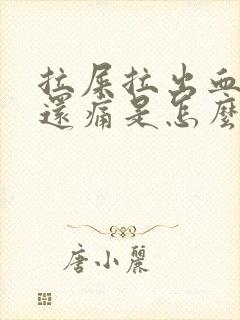 拉屎拉出血
還痛是怎麼
唐小麗